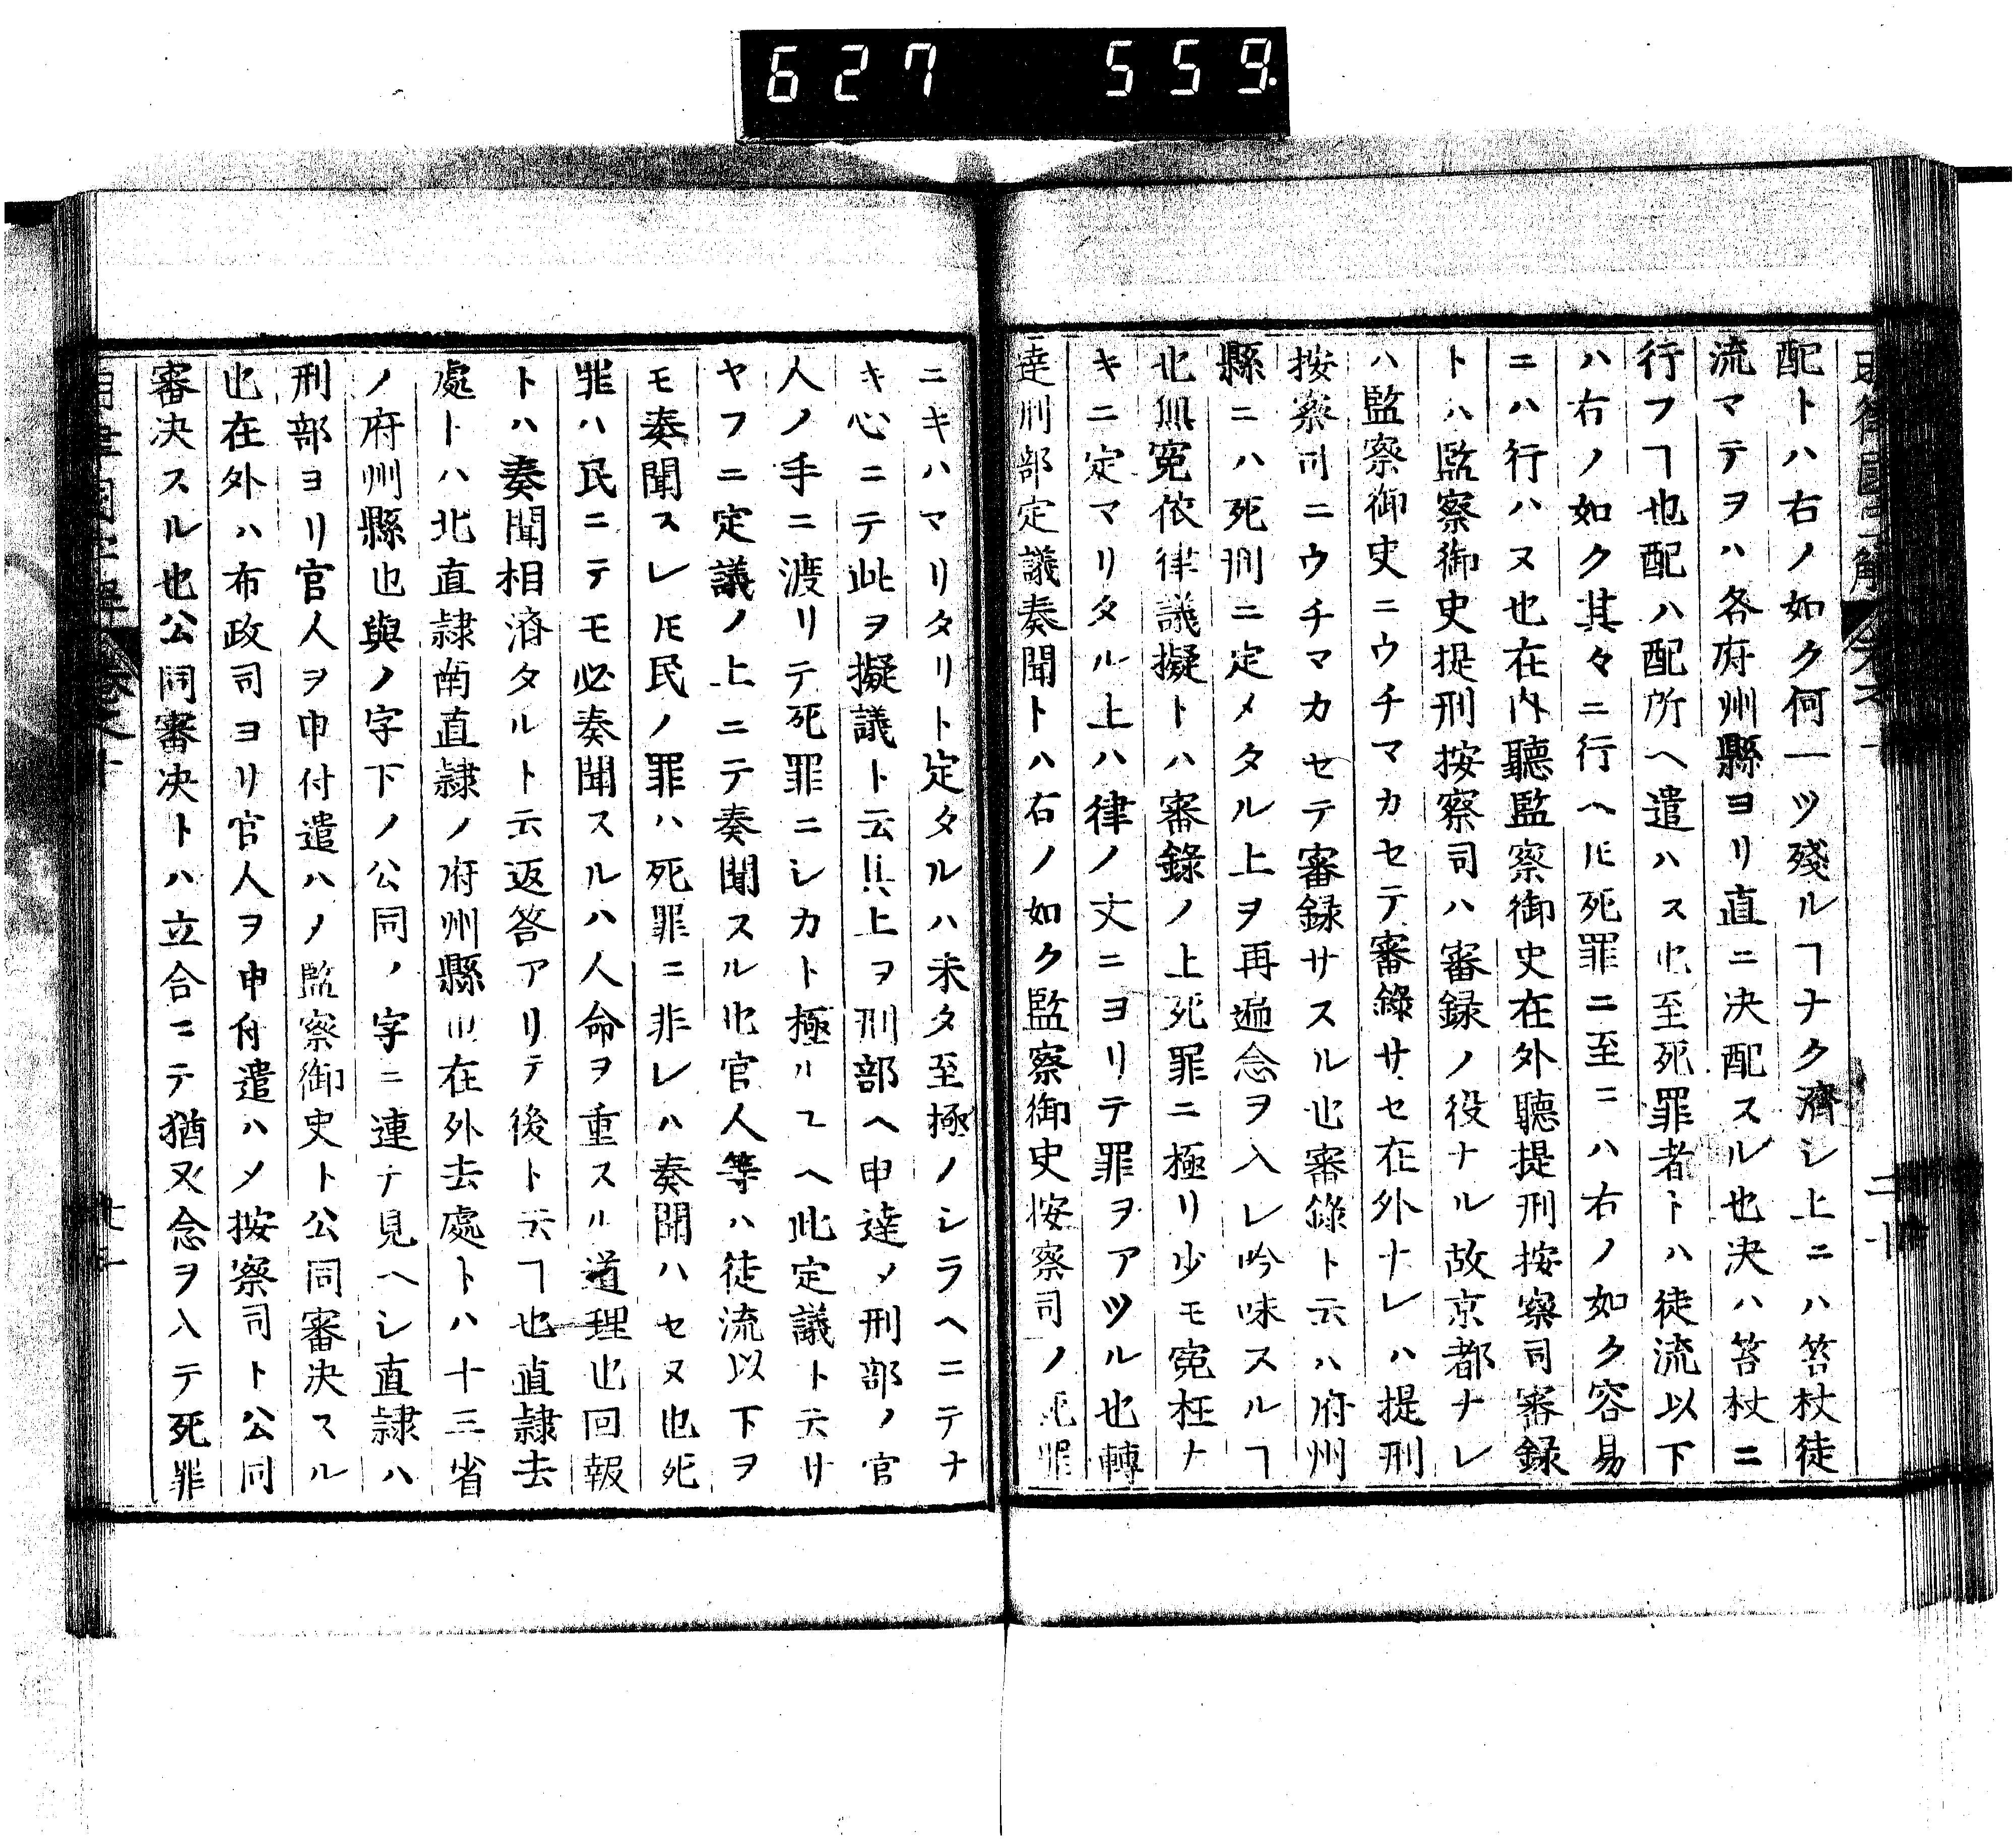 627 559
配トハ右ノ如ク何一ツ殘ルヿナク濟シ上ニハ笞杖徒
流マテヲハ各府州縣ヨリ直ニ决配スル也决ハ笞杖ニ
行フヿ也配ハ配所ヘ遣ハス也至死罪者トハ徒流以下
ハ右ノ如ク其々ニ行ヘ𪜈死罪ニ至ニハ右ノ如ク容易
ニハ行ハヌ也在内聽監察御史在外聽提刑按察司審録
トハ監察御史提刑按察司ハ審録ノ役ナル故京都ナレ
ハ監察御史ニウチマカセテ審錄サセ在外ナレハ提刑
按察司ニウチマカセテ審録サスル也審錄ト云ハ府州
縣ニハ死刑ニ定メタル上ヲ再遍念ヲ入レ吟味スルヿ
也無冤依律議擬トハ審錄ノ上死罪ニ極リ少モ寃枉ナ
キニ定マリタル上ハ律ノ丈ニヨリテ罪ヲアツル也轉
達刑部定議奏聞トハ右ノ如ク監察御史按察司ノ死罪
ニキハマリタリト定タルハ未タ至極ノシラヘニテナ
キ心ニテ此ヲ擬議ト云其上ヲ刑部ヘ申達メ刑部ノ官
人ノ手ニ渡リテ死罪ニシカト極ルヿヘ此定議ト云リ
ヤフニ定議ノ上ニテ奏聞スル也官人等ハ徒流以下ヲ
モ奏聞スレ𪜈民ノ罪ハ死罪ニ非レハ奏聞ハセヌ也死
罪ハ民ニテモ必奏聞スルハ人命ヲ重スル道理也回報
トハ奏聞相濟タルト云返答アリテ後ト云ヿ也直隷去
處トハ北直隷南直隷ノ府州縣也在外去處トハ十三省
ノ府州縣也與ノ字下ノ公同ノ字ニ連テ見ヘシ直隷ハ
刑部ヨリ官人ヲ申付遣ハメ監察御史ト公同審决スル
也在外ハ布政司ヨリ官人ヲ申付遣ハメ按察司ト公同
審决スル也公同審决トハ立合ニテ猶又念ヲ入テ死罪